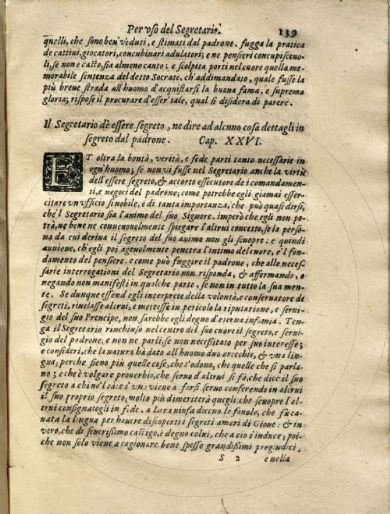 Per vso del Segretario. 139
quelli, che sono ben veduti, e stimati dal padrone. fugga la pratica
de cattiui, giocatori, concubinari adulatori; e ne pensieri concupisceuo-
li, se non è casto, sia almeno canto; e scolpita porti nel cuore quella me-
morabile sentenza del detto Socrate, ch'addimandato, quale fusse la
più breue strada all'huomo d'acquistarsi la buona fama, e suprema
gloria; rispose il procurare d'esser tale, qual si disidera di parere.
Il Segretario dè essere segreto, ne dire ad alcuno cosa dettagli in
segreto dal padrone. Cap. XXVI.
ET oltra la bontà, verità, e fede parti tanto necessarie in
ogn'huomo; se non vi fusse nel Segretario anche la virtù
dell'essere segreto, & accorto essecutore de i comandamen-
ti, e negoci del padrone; come potrebbe egli giamai esser-
citare vn vfficio si nobile, e di tanta importanza, che può quasi dirsi,
che'l Segretario sia l'animo del suo Signore. imperò che egli non po-
trà, ne bene ne conueneuolmente spiegare l'altrui concetto, se la perso-
na da cui deriua il segreto del suo animo non gli scuopre. e quindi
auuiene, ch'egli poi ageuolmente penetra l'intimo del cuore, e'l fon-
damento del pensiere. e come può fuggire il padrone, che alle neces-
sarie interrogationi del Segretario non risponda, & affermando, o
negando non manifesti in qualche parte, se non in tutto la sua men-
te. Se dunque essend'egli interprete della volontà, e conseruatore de
segreti, riuelasse altrui, e mettesse in pericolo la riputatione, e serui-
gio del suo Prencipe, non sarebbe egli degno d'eterna infamia. Ten-
ga il Segretario rinchiuso nel centro del suo cuore il segreto, e serui-
gio del padrone, e non ne parli, se non necessitato per suo interesse;
e consideri, che la natura hà dato all'huomo due orecchie, & vna lin-
gua; perche sieno più quelle cose, che s'odono, che quelle che si parla-
no; e ch'è volgare prouerbio, che seruo d'altrui si fà, che dice il suo
segreto a chi no'l sà: e s'vn viene a farsi seruo conferendo in altrui
il suo proprio segreto; molto più dimeriterà quegli, che scuopre l'al-
trui consignatogli in fede. a loro ninfa dicono le fauole, che fù ca-
uata la lingua per hauere discoperti i segreti amori di Gioue: & in
vero, che di seuerissimo castigo, è degno colui, che a ciò s'induce; poi-
che non solo viene a cagionare bene spesso grandissimi pregiudici,
S 2 e nella